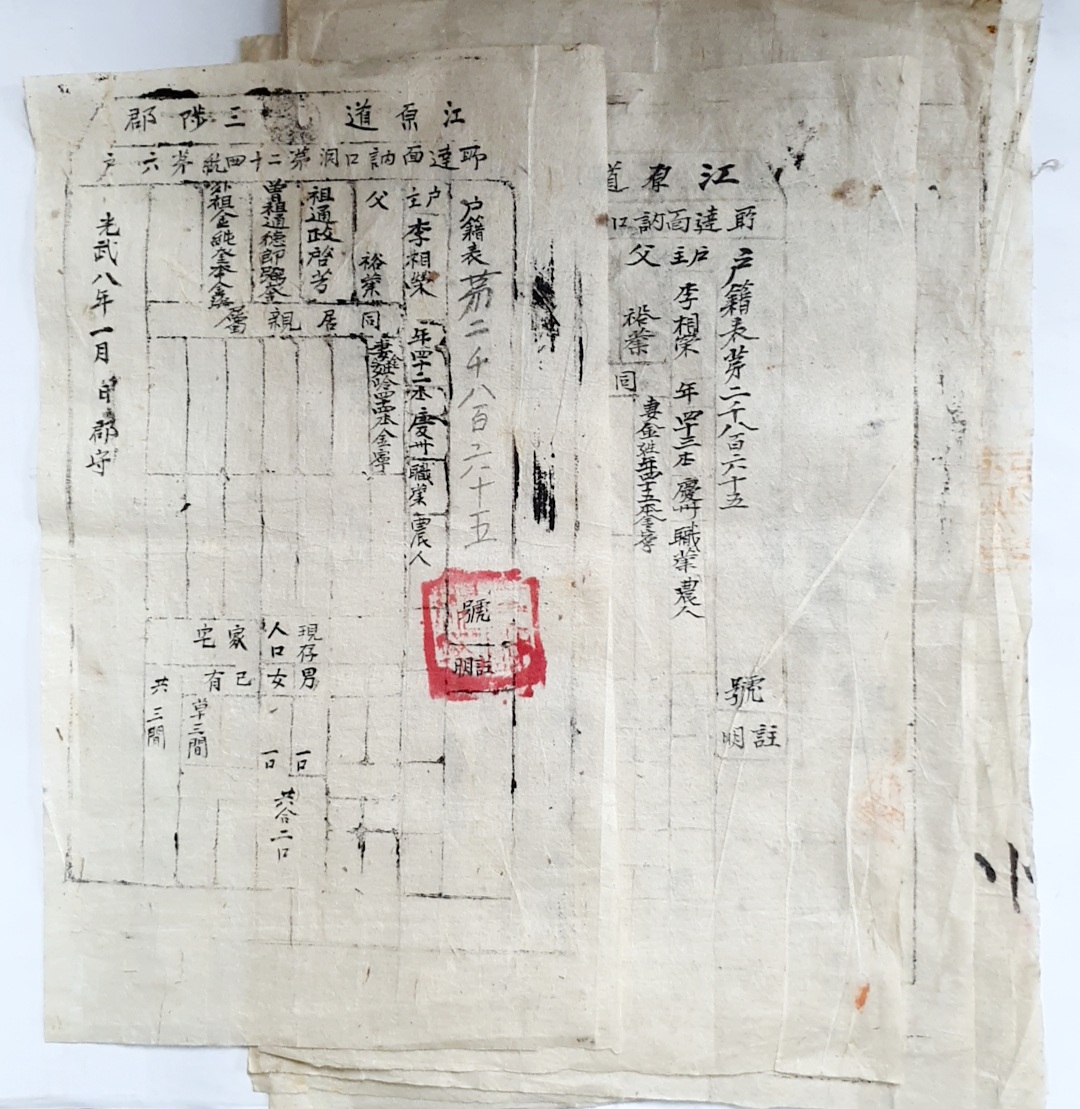 江原道三陟郡
所達面訥口洞第二十四統第六戶
戶籍表第二千八百六十五
號
註明
戶主 李相榮 年四十二 本慶州 職業農人
父 裕業
祖通政啓芳
曾祖通德郎
外祖金 本金
同居親屬
妻金姓 本金寧
現存男 一口
人口女 一口
共合二口
家宅
己有
草三間
共三間
光武八年一月 日郡守
江原道
所達面訥口
戶籍表第二千八百六十五
號
註明
戶主 李相榮 年四十三 本慶州 職業農人
父 裕業
同
妻金姓年四十五本金寧